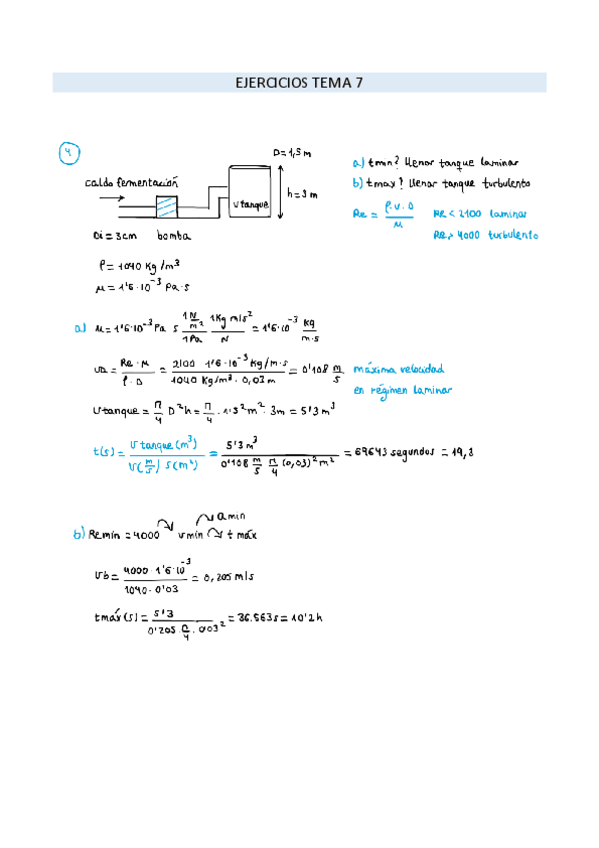 EJERCICIOS TEMA 7
4
D=1,5m
caldo fermentación
V tanque
h=3m
Di=3cm bomba
a) tmin? llenar tanque laminar
b) tmax? llenar tanque turbulento
Re = ρ·v·D / μ Re<2100 laminar
Re>4000 turbulento
ρ=1040 kg/m³
μ=1'6·10⁻³ Pa·s
a) μ=1'6·10⁻³ Pa s 1N/m² / 1Pa 1kg m/s² / N = 1'6·10⁻³ kg / m·s
va = Re·μ / ρ·D = 2100 1'6·10⁻³ kg/m·s / 1040 kg/m³·0,03m = 0'108 m/s máxima velocidad
en régimen laminar
Vtanque = π/4 D²h = π/4 ·1'5² m²·3m = 5'3m³
t(s) = V tanque(m³) / v(m/s) s(m²) = 5'3m³ / 0'108 m/s π/4 (0,03)² m² = 69643 segundos = 19,3
b) Remín = 4000 vmín t máx
Qmin
vb = 4000·1'6·10⁻³ / 1040·0'03 = 0,205 m/s
tmáx(s) = 5'3 / 0'205·π/4·0'03² = 36.563s = 10'2h